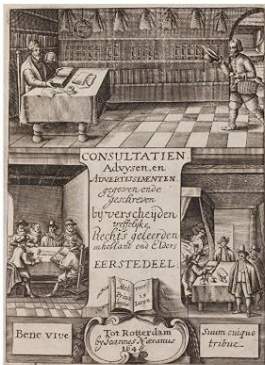 CONSULTATIEN
Advysen, en
ADVERTISSEMENTEN,
gegeven ende
geschreven
by verscheijden
treffelijke
Rechts-geleerden
in hollant end Elders
EERSTE DEEL
Bene vive
Tot Rotterdam
by Joannes Næranus
164
Suum cuique
tribue